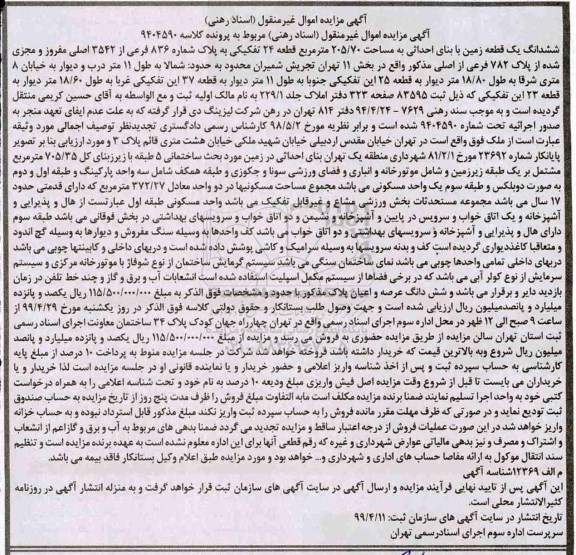 آگهی مزایده اموال غیرمنقول (اسناد رهنی)
آگهی مزایده اموال غیرمنقول (اسناد رهنی) مربوط به پرونده کلاسه ۹۴۰۴۵۹۰
ششدانگ یک قطعه زمین با بنای احداثی به مساحت ۲۰۵/۷۰ مترمربع قطعه ۲۴ تفکیکی به پلاک شماره ۸۳۶ فرعی از ۳۵۴۲ اصلی مفروز و مجزی
شده از پلاک ۷۸۲ فرعی از اصلی مذکور واقع در بخش ۱۱ تهران تجریش شمیران محدود به حدود: شمالا به طول ۱۱ متر درب و دیوار به خیابان ۸
متری شرقا به طول ۱۸/۸۰ متر دیوار به قطعه ۲۵ این تفکیکی جنوبا به طول ۱۱ متر دیوار به قطعه ۳۷ این تفکیکی غربا به طول ۱۸/۶۰ متر دیوار به
قطعه ۲۳ این تفکیکی که ذیل ثبت ۸۳۵۹۵ صفحه ۳۲۳ دفتر املاک جلد ۲۲۹/۱ به نام مالک اولیه ثبت و مع الواسطه به آقای حسین کریمی منتقل
گردیده است و به موجب سند رهنی ۷۶۲۹ - ۹۴/۴/۲۴ دفتر ۸۱۴ تهران در رهن شرکت لیزینگ دی قرار گرفته که به علت عدم ایفای تعهد منجر به
صدور اجرائیه تحت شماره ۹۴۰۴۵۹۰ شده است و برابر نظریه مورخ ۹۸/۵/۲ کارشناس رسمی دادگستری تجدیدنظر توصیف اجمالی مورد وثیقه
عبارت است از ملک فوق واقع است در تهران خیابان مقدس اردبیلی خیابان شهید ملکی خیابان هشت متری قائم پلاک ۳ و مورد ارزیابی بنا بر تصویر
پایانکار شماره ۲۳۶۹۲ مورخ ۸۱/۲/۱ شهرداری منطقه یک تهران بنای احداثی در زمین مورد بحث ساختمانی ۵ طبقه با زیربنای کل ۷۰۵/۳۵ مترمربع
مشتمل بر یک طبقه زیرزمین و شامل موتورخانه و انباری و فضای ورزشی سونا و جکوزی و طبقه همکف شامل سه واحد پارکینگ و طبقه اول و دوم
به صورت دوبلکس و طبقه سوم یک واحد مسکونی می باشد مجموع مساحت مسکونیها در دو واحد معادل ۳۷۲/۲۷ مترمربع که دارای قدمتی حدود
۱۷ سال می باشد مجموعه مستحدثات بخش ورزشی مشاع و غیرقابل تفکیک می باشد واحد مسکونی طبقه اول عبارتست از هال و پذیرایی و
آشپزخانه و یک اتاق خواب و سرویس در پایین و آشپزخانه و نشیمن و دو اتاق خواب و سرویسهای بهداشتی در بخش فوقانی می باشد طبقه سوم
دارای هال و پذیرایی و آشپزخانه و سرویسهای بهداشتی و دو اتاق خواب می باشد کف واحدها به وسیله سنگ مفروش و دیوارها به وسیله گچ اندود
و متعاقبا کاغذدیواری گردیده است کف و بدنه سرویسها به وسیله سرامیک و کاشی پوشش داده شده است و دربهای داخلی و کابینتها چوبی می باشد
دربهای داخلی تمامی واحدها چوبی می باشد نمای ساختمان سنگی می باشد سیستم گرمایش ساختمان از نوع شوفاژ با موتورخانه مرکزی و سیستم
سرمایش از نوع کولر آبی می باشد که در برخی فضاها از سیستم مکمل اسپلیت استفاده شده است انشعابات آب و برق و گاز و چند خط تلفن در زمان
بازدید دایر و برقرار می باشد و شش دانگ عرصه و اعیان پلاک مذکور با حدود و مشخصات فوق الذکر به مبلغ ۱۱۵/۵۰۰/۰۰۰/۰۰۰ ریال یکصد و پانزده
میلیارد و پانصدمیلیون ریال ارزیابی شده است و جهت وصول طلب بستانکار و حقوق دولتی کلاسه فوق الذکر در روز یکشنبه مورخ ۹۹/۴/۲۹ از
ساعت ۹ صبح الی ۱۲ ظهر در محل اداره سوم اجرای اسناد رسمی واقع در تهران چهارراه جهان کودک پلاک ۳۴ ساختمان معاونت اجرای اسناد رسمی
ثبت استان تهران سالن مزایده از طریق مزایده حضوری به فروش می رسد مزایده از مبلغ ۱۱۵/۵۰۰/۰۰۰/۰۰۰ ریال یکصد و پانزده میلیارد و پانصد
میلیون ریال شروع وبه بالاترین قیمت که خریدار داشته باشد فروخته خواهد شد شرکت در جلسه مزایده منوط به پرداخت ۱۰ درصد از مبلغ پایه
کارشناسی به حساب سپرده ثبت و پس از اخذ شناسه واریز اعلامی و حضور خریدار و یا نماینده قانونی او در جلسه مزایده است لذا خریدار و یا
خریداران می بایست تا قبل از شروع وقت مزایده اصل فیش واریزی مبلغ ودیعه ۱۰ درصد به نام خود و تحت شناسه اعلامی را به همراه درخواست
کتبی خود به واحد اجرا تسلیم نمایند ضمنا برنده مزایده مکلف است مابه التفاوت مبلغ فروش را ظرف مدت پنج روز از تاریخ مزایده به حساب صندوق
ثبت تودیع نماید و در صورتی که ظرف مهلت مقرر مانده فروش را به حساب سپرده ثبت واریز نکند مبلغ مذکور قابل استرداد نبوده و به حساب خزانه
واریز خواهد شد در این صورت عملیات فروش از درجه اعتبار ساقط و مزایده تجدید می گردد ضمنا بدهی های مربوط به آب و برق و گازاعم از انشعاب
و اشتراک و مصرف و نیز بدهی مالیاتی عوارض شهرداری و غیره که رقم قطعی آنها برای این اداره معلوم نشده است به عهده برنده مزایده است و تنظیم
سند انتقال موکول به ارائه مفاصا حساب های اداری و شهرداری و... خواهد بود و مورد مزایده طبق اعلام وکیل بستانکار فاقد بیمه می باشد.
م الف ۱۲۳۶۹شناسه آگهی
این آگهی پس از تایید نهایی فرآیند مزایده و ارسال آگهی در سایت آگهی های سازمان ثبت قرار خواهد گرفت و به منزله انتشار آگهی در روزنامه
کثیرالانتشار محلی است.
تاریخ انتشار در سایت آگهی های سازمان ثبت: ۹۹/۴/۱۱
سرپرست اداره سوم اجرای اسنادرسمی تهران